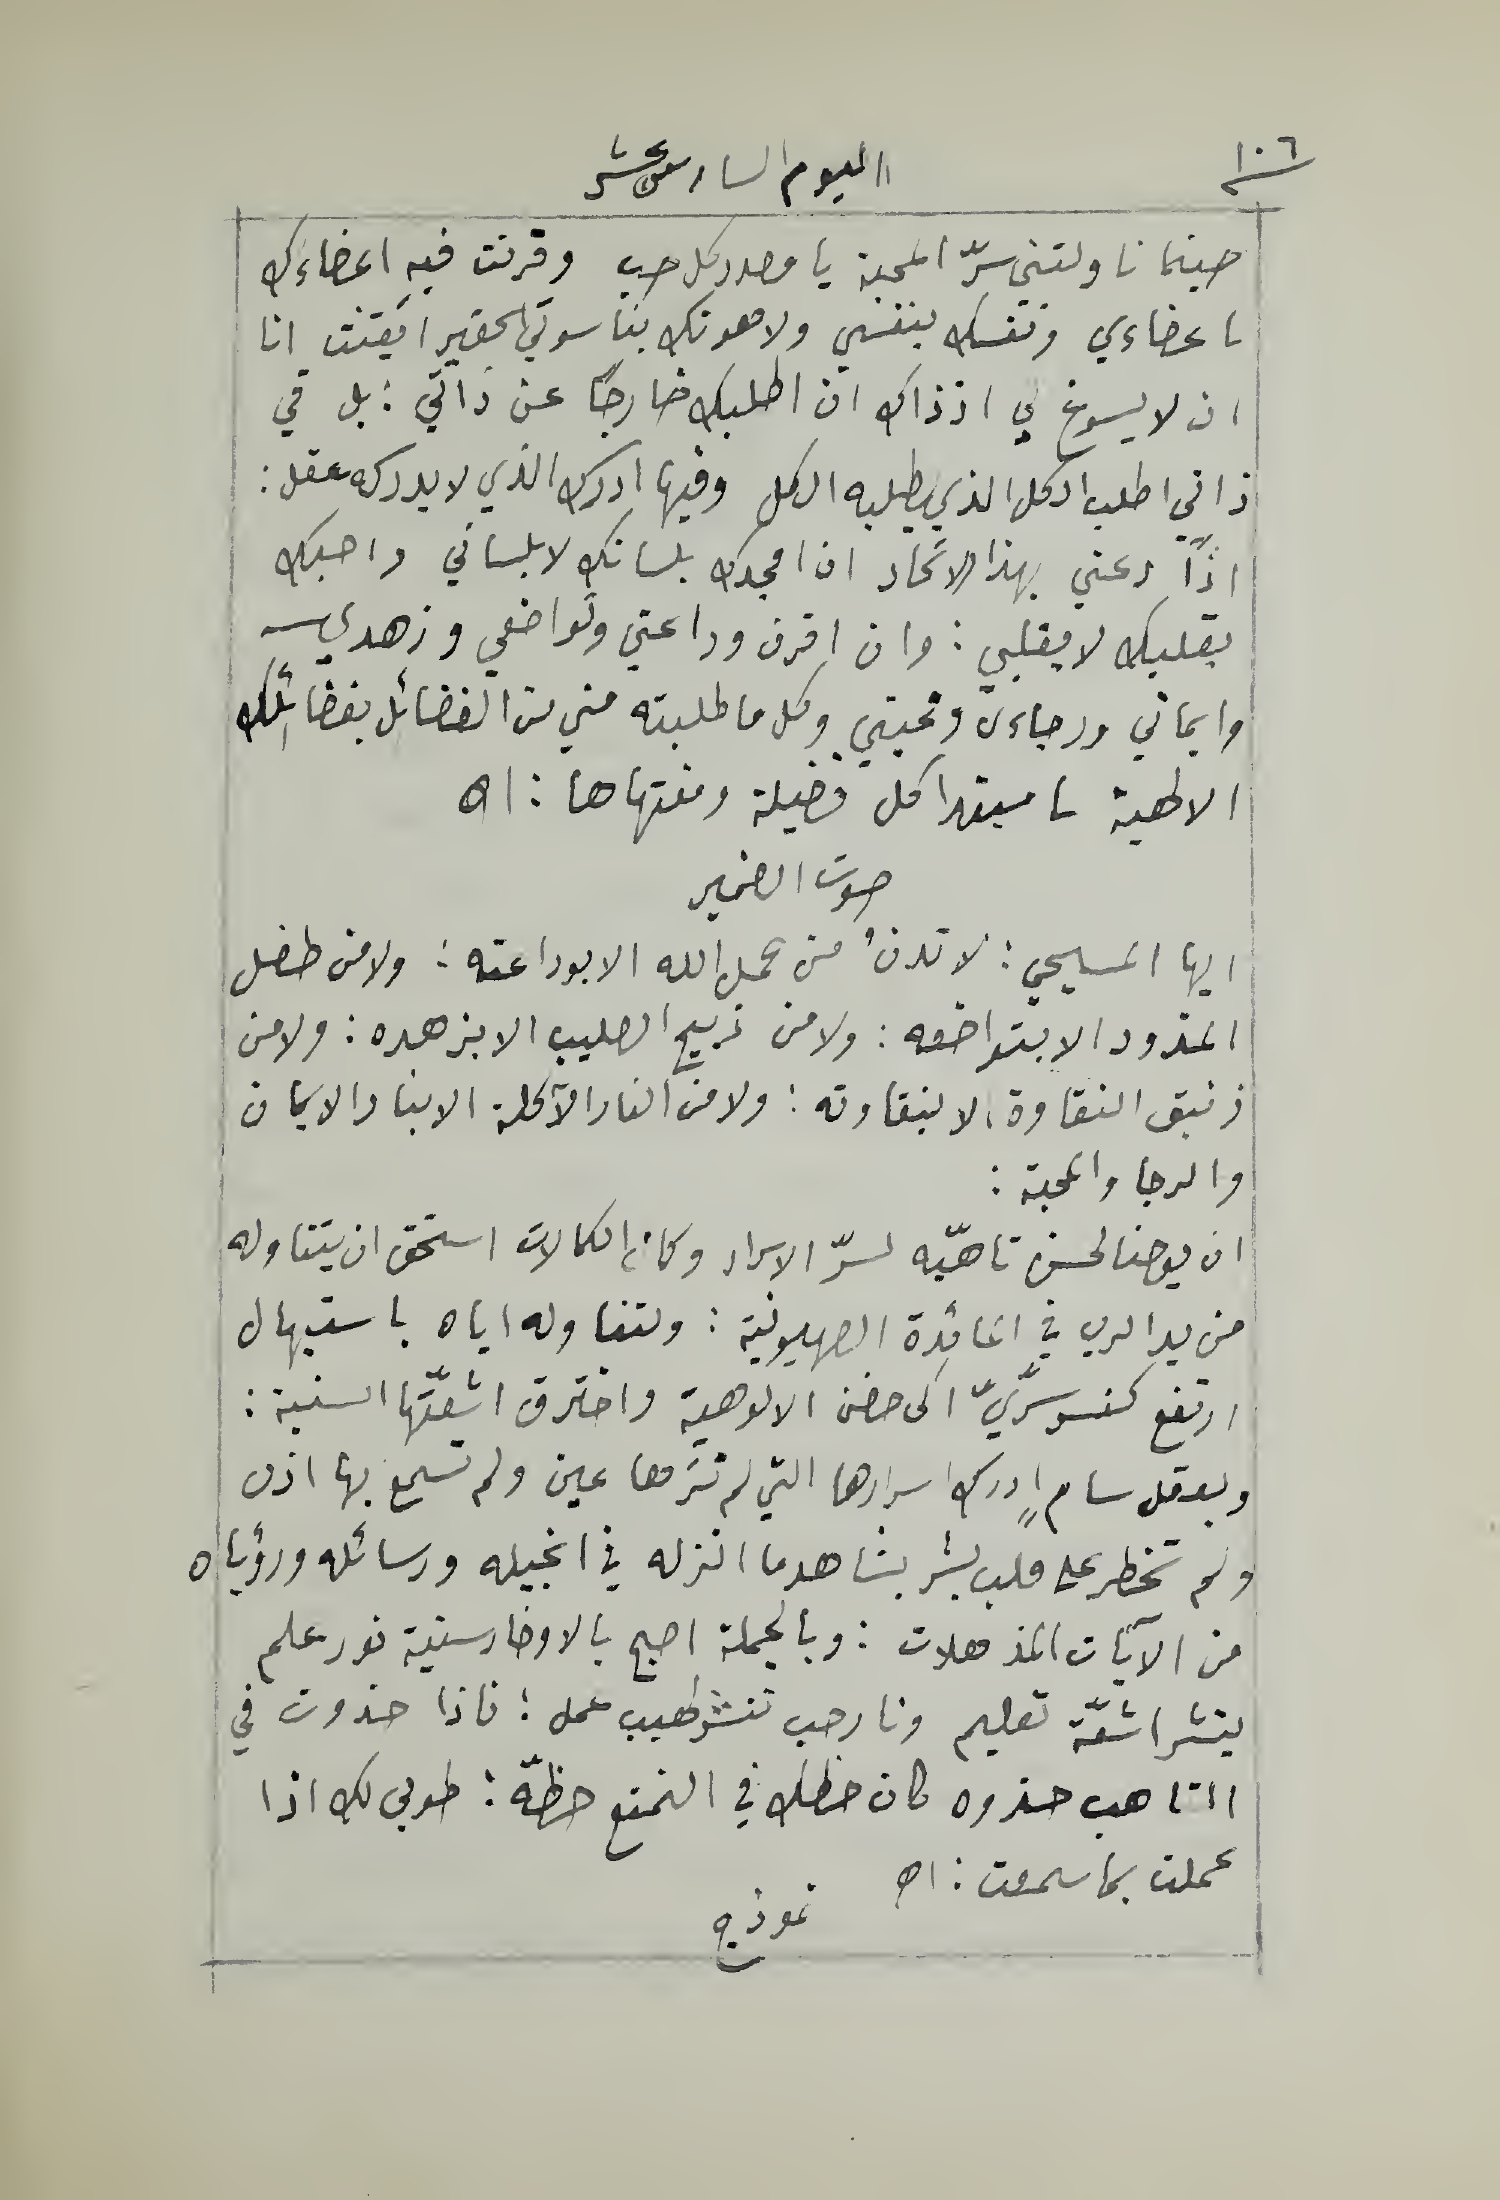 ١٠٦
اليوم السادس عشر
حينما ناولتني سرّ المحبة يا مصدر كل حب وقرنت فيه اعضاءك
باعضاءي ونفسك بنفسي ولاهوتك بناسوتي الحقير ايقنت انا
ان لا يسوغ لي اذ ذاك ان اطلبك خارجًا عن ذاتي : بل في
ذاتي اطلب الكل الذي يطلبه الكل وفيها ادرك الذي لا يدركه عقل :
اذًا دعني بهذا الاتحاد ان امجدك بلسانك لا بلساني واحبك
بقلبك لا بقلبي : وان اقرن وداعتي وتواضعي وزهدي
وايماني ورجاءي ومحبتي وكل ما طلبته مني من الفضائل بفضائلك
الالهية يا مبتدا كل فضيلة ومنتهاها : اه
صوت الضمير
ايها المسيحي : لا تدنُ من حمل الله الا بوداعته : ولا من طفل
المذود الا بتواضعه : ولا من ذبيح الصليب الا بزهده : ولا من
زنبق النقاوة الا بنقاوته : ولا من النار الآكلة الا بنار الايمان
والرجا والمحبة :
ان يوحنا لحسن تاهبّه لسرّ الاسرار وكان الكمالات استحق ان يتناوله
من يد الرب في المائدة الصهيونية : ولتناوله اياه باستيهال
ارتفع كنسر سرّيّ الى حضن الالوهية واخترق اشعّتها السنية :
وبعقل سامٍ ادرك اسرارها التي لم تَرَها عين ولم تسمع بها اذن
ولم تخطر على قلب بشر بشاهد ما انزله في انجيله ورسائله ورؤياه
من الآيات المذهلات : وبالجملة اصبح بالاوخارستية نور علم
ينشر اشعّة تعليم ونار حب تنشر لهيب عمل : فاذا حذوت في
التاهب حذوه كان حظك في التمتع حظّه : طوبى لك اذا
عملت بما سمعت : اه
نموذج